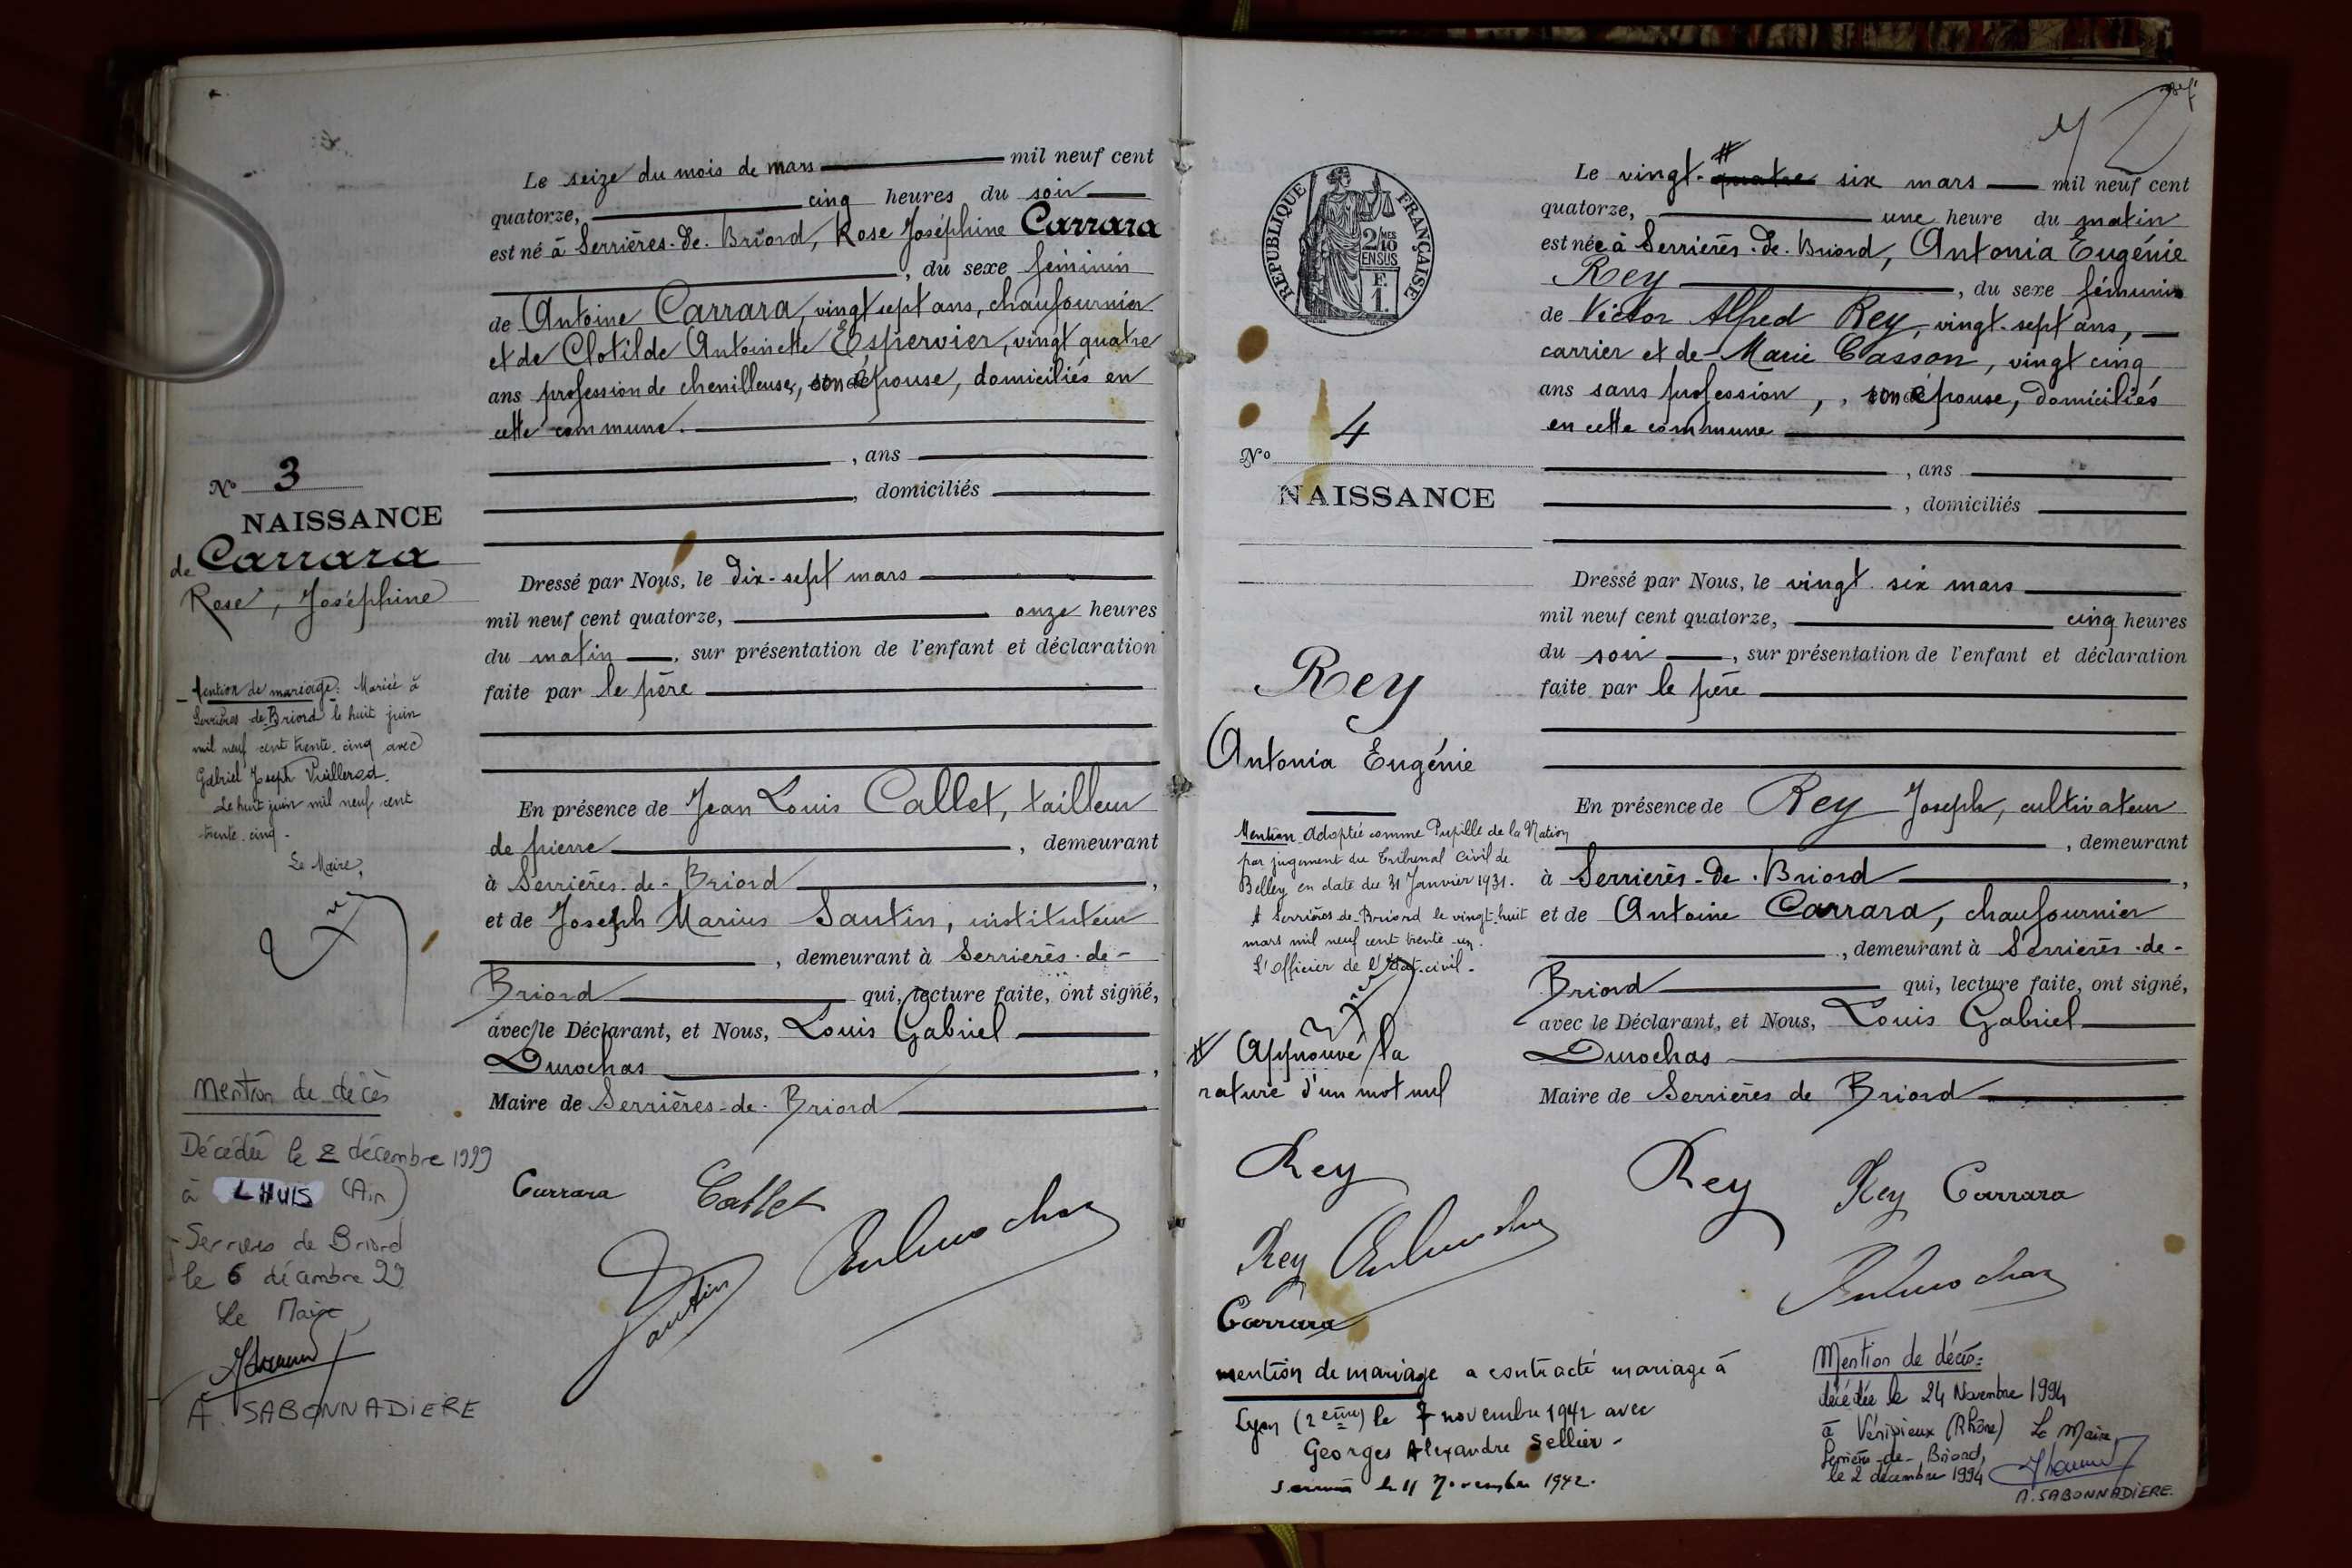 Le seize du mois de mars mil neuf cent
quatorze, cinq heures du soir
est né à Serrières-de-Briord, Rose Joséphine Carrara
, du sexe féminin
de Antoine Carrara, vingt sept ans, chaufournier
et de Clotilde Antoinette Espervier, vingt quatre
ans profession de chenilleuse, son épouse, domiciliés en
cette commune.
, ans
, domiciliés
Nº 3
NAISSANCE
de Carrara
Rose, Joséphine
Dressé par Nous, le dix-sept mars
mil neuf cent quatorze, onze heures
du matin, sur présentation de l'enfant et déclaration
faite par le père
Mention de mariage: Mariée à
Serrières-de-Briord le huit juin
mil neuf cent trente-cinq avec
Gabriel Joseph
Le huit juin mil neuf cent
trente-cinq.
Le Maire,
En présence de Jean Louis Callet, tailleur
de pierre, demeurant
à Serrières-de-Briord,
et de Joseph Marius Santin, instituteur
, demeurant à Serrières-de-
Briord qui, lecture faite, ont signé,
avec le Déclarant, et Nous, Louis Gabriel
Durochas,
Maire de Serrières-de-Briord
Mention de décès
Décédée le 2 décembre 1999
à LHUIS (Ain)
Serrières de Briord
le 6 décembre 99
Le Maire
A. SABONNADIERE
Carrara Callet
Santin Durochas
Le vingt-quatre # six mars mil neuf cent
quatorze, une heure du matin
est née à Serrières-de-Briord, Antonia Eugénie
Rey, du sexe féminin
de Victor Alfred Rey, vingt-sept ans,
carrier et de Marie Casson, vingt cinq
ans sans profession, , son épouse, domiciliés
en cette commune
, ans
, domiciliés
RÉPUBLIQUE FRANÇAISE
2/10 MES
EN SUS
F.
1.
Nº 4
NAISSANCE
Rey
Antonia Eugénie
Dressé par Nous, le vingt six mars
mil neuf cent quatorze, cinq heures
du soir, sur présentation de l'enfant et déclaration
faite par le père
Mention Adoptée comme Pupille de la Nation
par jugement du Tribunal Civil de
Belley en date du 31 Janvier 1931.
A Serrières-de-Briord le vingt-huit
mars mil neuf cent trente-un.
L'officier de l'état-civil.
# Approuvé la
rature d'un mot nul
En présence de Rey Joseph, cultivateur
, demeurant
à Serrières-de-Briord,
et de Antoine Carrara, chaufournier
, demeurant à Serrières-de-
Briord qui, lecture faite, ont signé,
avec le Déclarant, et Nous, Louis Gabriel
Durochas
Maire de Serrières de Briord
Rey
Rey Durochas
Carrara
Rey Rey Carrara
Durochas
mention de mariage a contracté mariage à
Lyon (2ème) le 7 novembre 1942 avec
Georges Alexandre Sellier.
le 11 Novembre 1942.
Mention de décès:
décédée le 24 Novembre 1994
à Vénissieux (Rhône) Le Maire
Serrières-de-Briord,
le 2 décembre 1994
A. SABONNADIERE.